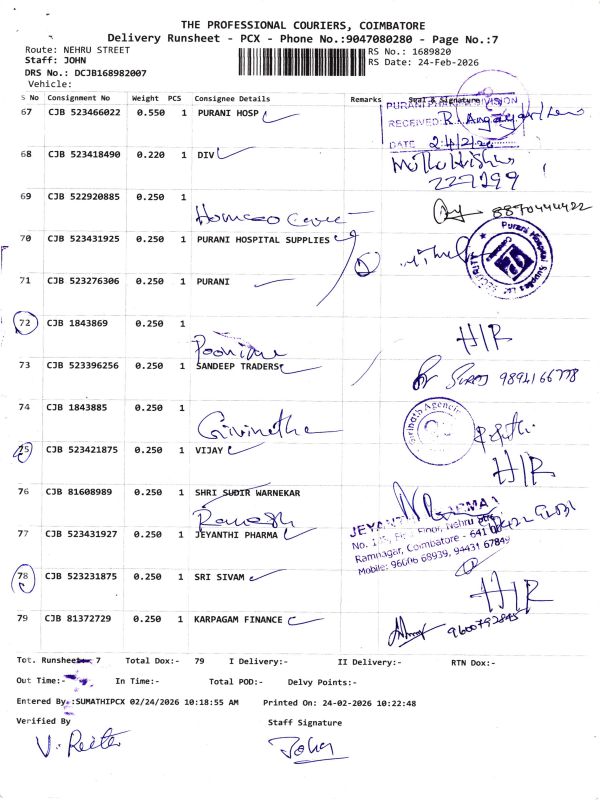 THE PROFESSIONAL COURIERS, COIMBATORE
Delivery Runsheet - PCX - Phone No.:9047080280 - Page No.:7
Route: NEHRU STREET
RS No.: 1689820
Staff: JOHN
RS Date: 24-Feb-2026
DRS No.: DCJB168982007
Vehicle:
S No Consignment No Weight PCS Consignee Details Remarks Seal & Signature
67 CJB 523466022 0.550 1 PURANI HOSP
RECEIVED
DATE 24/2/26
68 CJB 523418490 0.220 1 DIV
227299
69 CJB 522920885 0.250 1
Homoeo Care
8870444422
70 CJB 523431925 0.250 1 PURANI HOSPITAL SUPPLIES
Purani Hospital Supplies
71 CJB 523276306 0.250 1 PURANI
72 CJB 1843869 0.250 1
H/R
73 CJB 523396256 0.250 1 SANDEEP TRADERS
9894166778
74 CJB 1843885 0.250 1
Girinath Agencies
75 CJB 523421875 0.250 1 VIJAY
H/R
76 CJB 81608989 0.250 1 SHRI SUDIR WARNEKAR
Ramesh
77 CJB 523431927 0.250 1 JEYANTHI PHARMA
Nehru
Ramnagar, Coimbatore - 641
Mobile: 96006 68939, 94431 67849
78 CJB 523231875 0.250 1 SRI SIVAM
H/R
79 CJB 81372729 0.250 1 KARPAGAM FINANCE
9600792845
Tot. Runsheet 7 Total Dox:- 79 I Delivery:- II Delivery:- RTN Dox:-
Out Time:- In Time:- Total POD:- Delvy Points:-
Entered By:SUMATHIPCX 02/24/2026 10:18:55 AM Printed On: 24-02-2026 10:22:48
Verified By Staff Signature
John